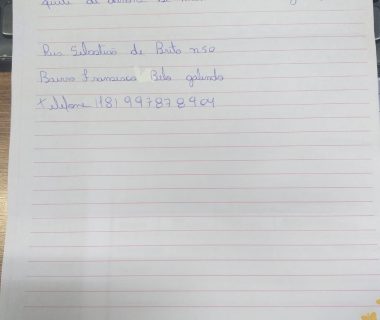 de
Rua Sebastião de Brito n50
Bairro Francisco Bilo galindo
Telefone (18) 997878904